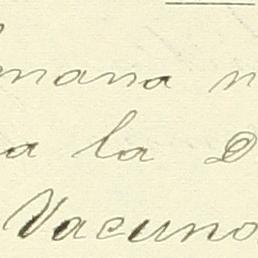 mana n
a la D
Vacuna